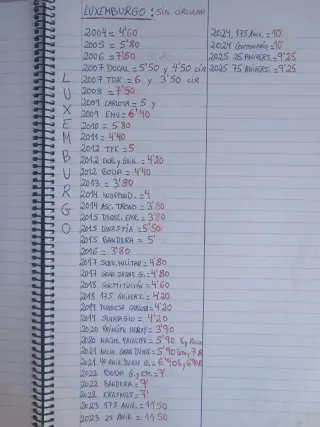 LUXEMBURGO: SIN CIRCULAR
LUXEMBURGO
2004 = 4'60
2005 = 5'80
2006 = 7'50
2007 DUCAL = 5'50 y 4'50 cir
2007 TDR = 6 y 3'50 cir
2008 = 7'50
2009 CARLOTA = 5 y
2009 EMU = 6'40
2010 = 5'80
2011 = 4'40
2012 TYE = 5
2012 ENR. y GUIL. = 4'20
2012 BODA = 4'40
2013 = 3'80
2014 INDEPEND. = 4
2014 ASC. TRONO = 3'80
2015 DUQUE. ENR. = 3'80
2015 DINASTÍA = 5'50
2015 BANDERA = 5'
2016 = 3'80
2017 SERV. MILITAR = 4'80
2017 GRAN DUQUE G. = 4'80
2018 CONSTITUCIÓN = 4'60
2018 175 ANIVERS. = 4'20
2019 DUQUESA CARLOTA = 4'20
2019 SUFRAGIO = 4'20
2020 PRÍNCIPE HENRY = 3'90
2020 NACIM. PRÍNCIPE = 5'90
2021 NACIM. GRAN DUQUE = 5'90
2021 40 ANIV. DUQUE G. = 6'90
2022 BODA G. y EST. = 7'
2022 BANDERA = 7'
2022 ERASMUS = 7'
2023 175 ANIV. = 11'50
2023 25 ANIV. = 11'50
2024, 175 ANIV. = 10
2024 CENTENARIO = 10
2025 25 ANIVERS. = 9'25
2025 75 ANIVERS. = 9'25